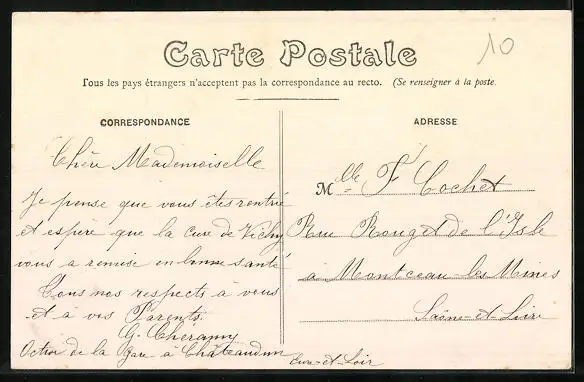 10
Carte Postale
Tous les pays étrangers n'acceptent pas la correspondance au recto. (Se renseigner à la poste.
CORRESPONDANCE
Chère Mademoiselle
Je pense que vous êtes rentrée
et espère que la cure de Vichy
vous a remise en bonne santé
Tous nos respects à vous
et à vos Parents.
G. Cheramy
Octroi de la gare à Châteaudun
Eure-et-Loir
ADRESSE
Mlle F Cochet
Rue Rouget de l'Isle
à Montceau-les-Mines
Saône-et-Loire